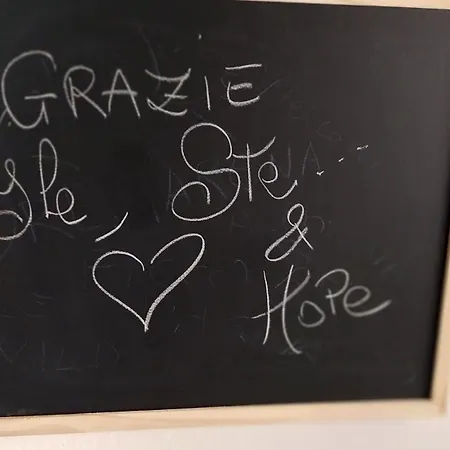 GRAZIE
yle, Ste...
&
HOPE